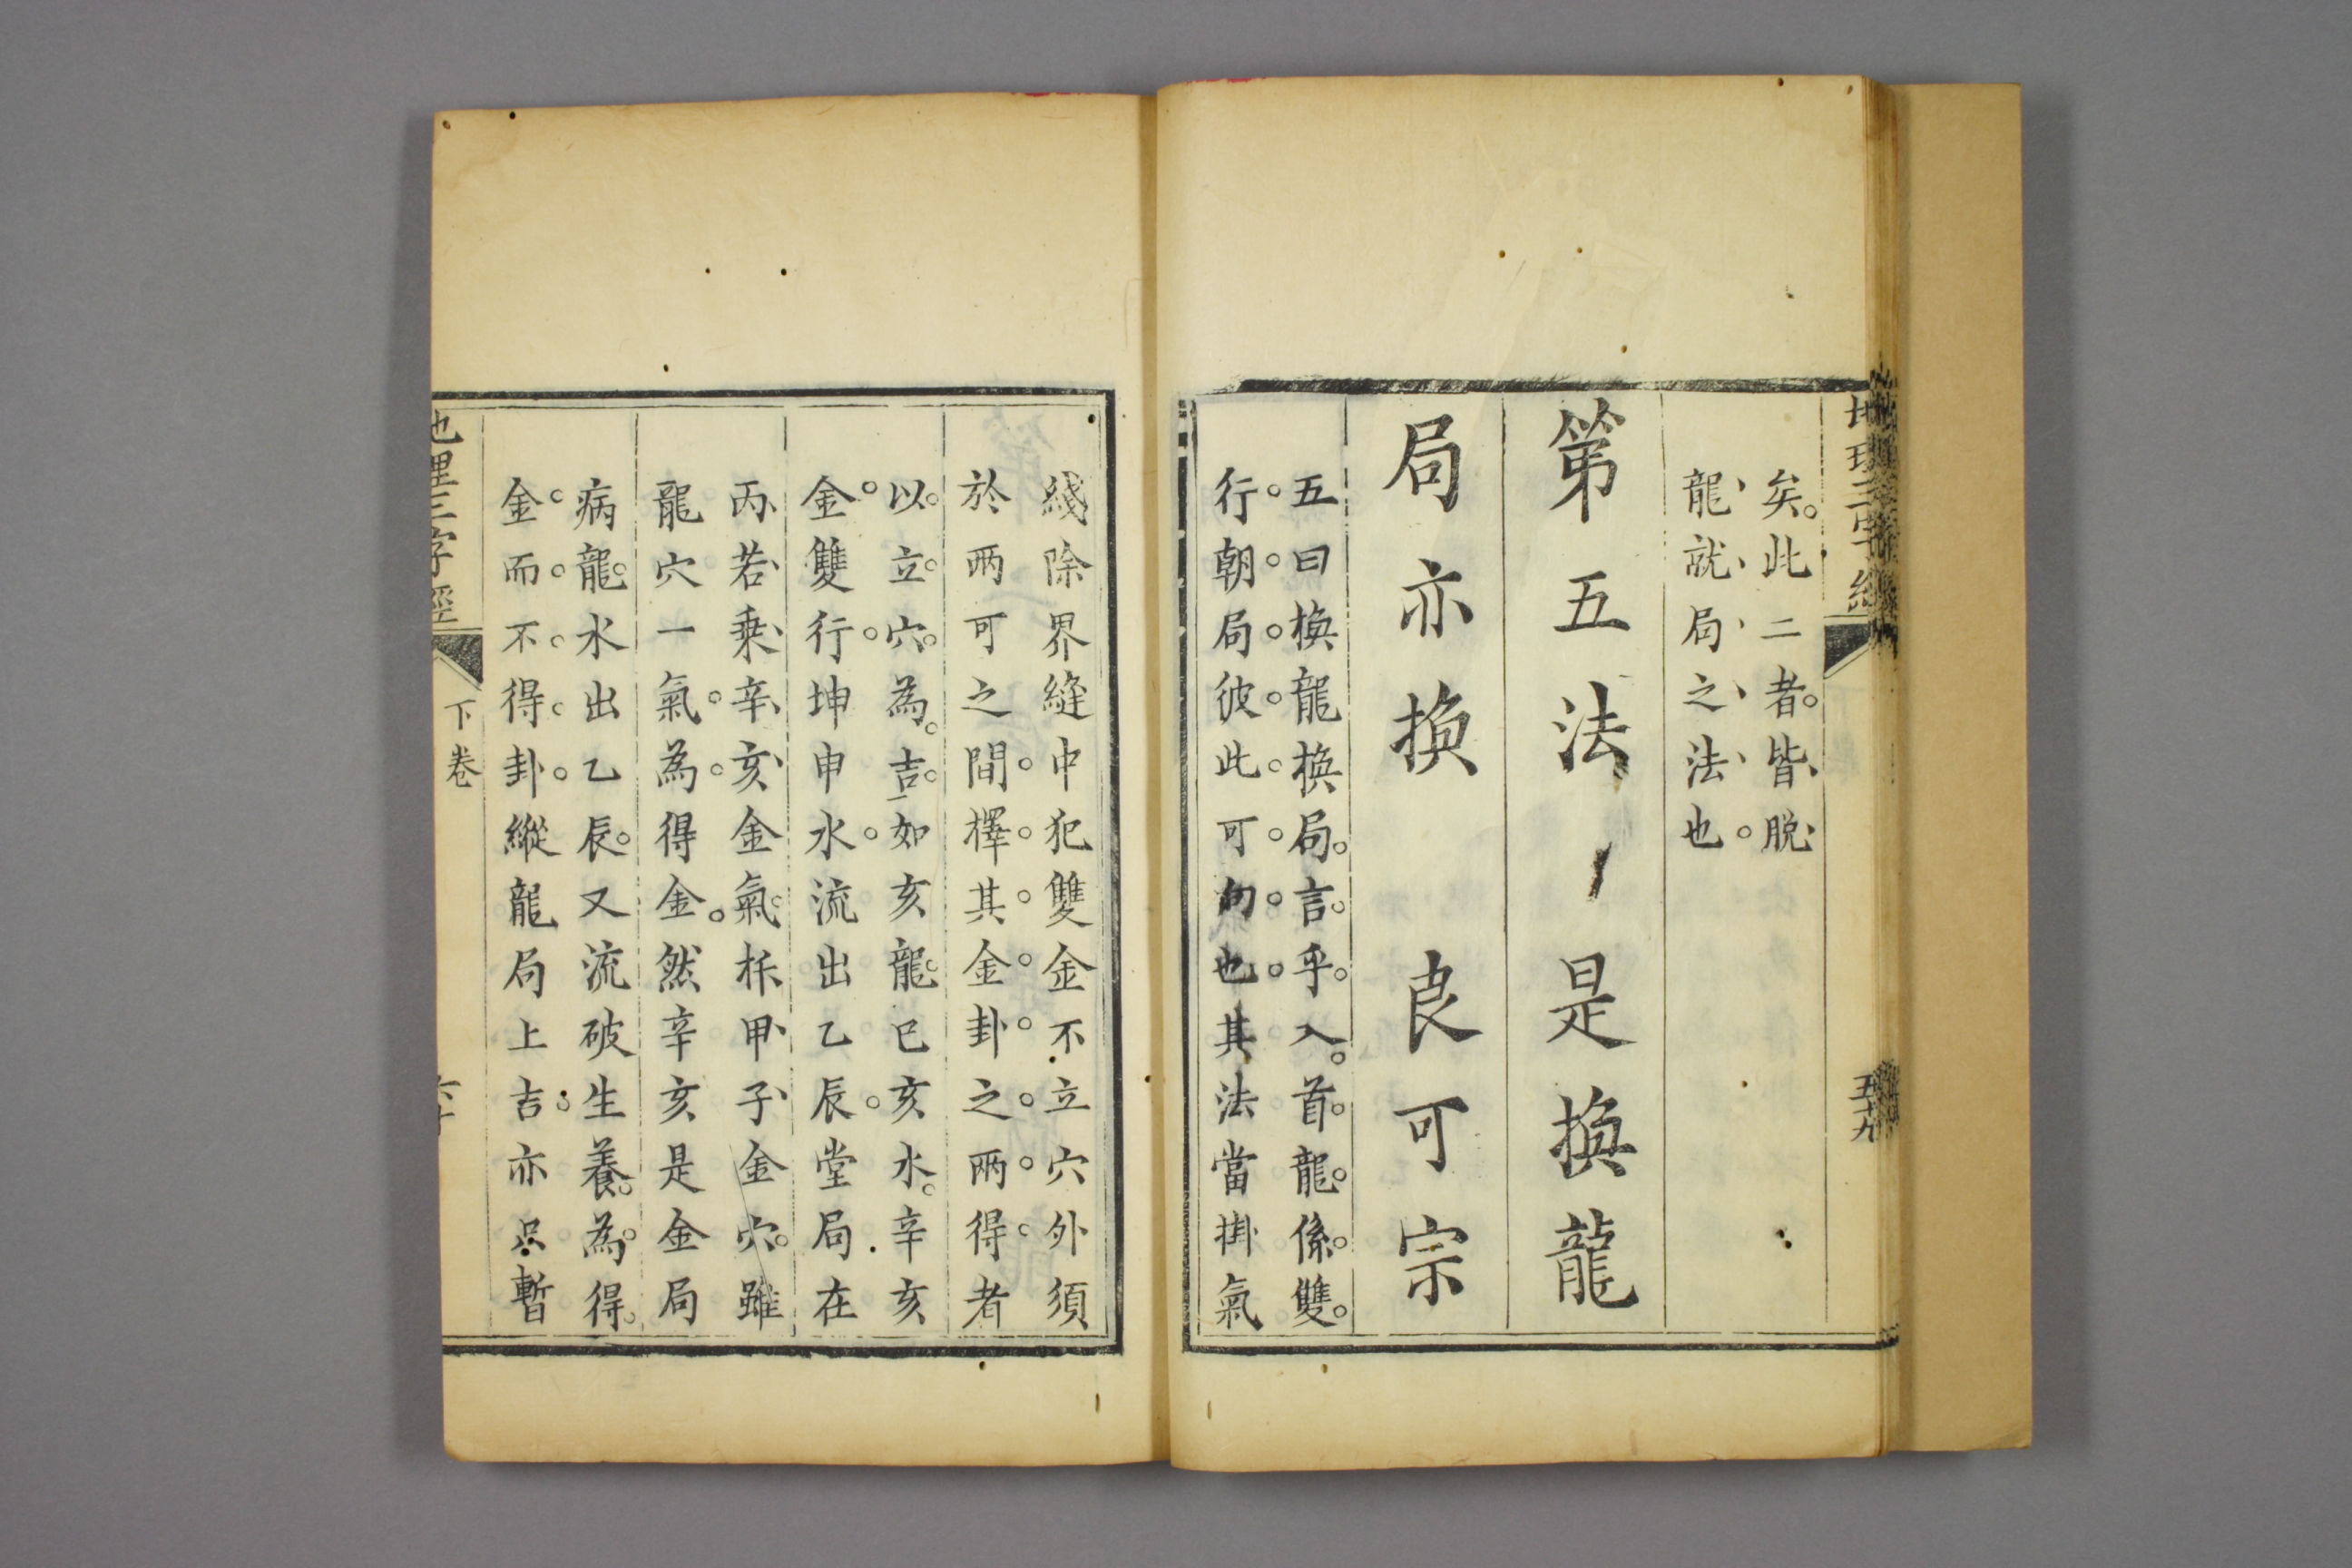 地理三字經
五十九
矣此二者皆脫
龍就局之法也
第五法 是換龍
局亦換 良可宗
五曰換龍換局言乎入首龍係雙
行朝局彼此可向也其法當掛氣
綫除界縫中犯雙金不立穴外須
於兩可之間擇其金卦之兩得者
以立穴為吉如亥龍巳亥水辛亥
金雙行坤申水流出乙辰堂局在
丙若乘辛亥金氣柝甲子金穴雖
龍穴一氣為得金然辛亥是金局
病龍水出乙辰又流破生養為得
金而不得卦縱龍局上吉亦只暫
地理三字經
下卷
六十